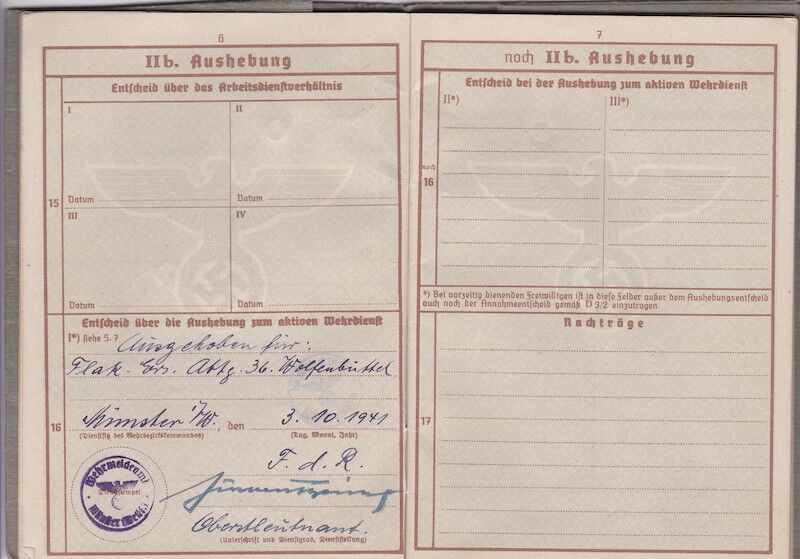 6
IIb. Aushebung
15
Entscheid über das Arbeitsdienstverhältnis
I
II
Datum
Datum
III
IV
Datum
Datum
16
Entscheid über die Aushebung zum aktiven Wehrdienst
I*) siehe S. 7
Ausgehoben für:
Flak. Ers. Abtg. 36. Wolfenbüttel
Münster i/W., den 3. 10. 1941
(Dienstsitz des Wehrbezirkskommandos) (Tag, Monat, Jahr)
F. d. R.
Wehrmeldeamt
Dienststempel
Münster (Westf.)
Oberstleutnant.
(Unterschrift und Dienstgrad, Dienststellung)
7
noch IIb. Aushebung
noch
16
Entscheid bei der Aushebung zum aktiven Wehrdienst
II*)
III*)
*) Bei vorzeitig dienenden Freiwilligen ist in diese Felder außer dem Aushebungsentscheid
auch noch der Annahmeentscheid gemäß D 3/2 einzutragen.
17
Nachträge